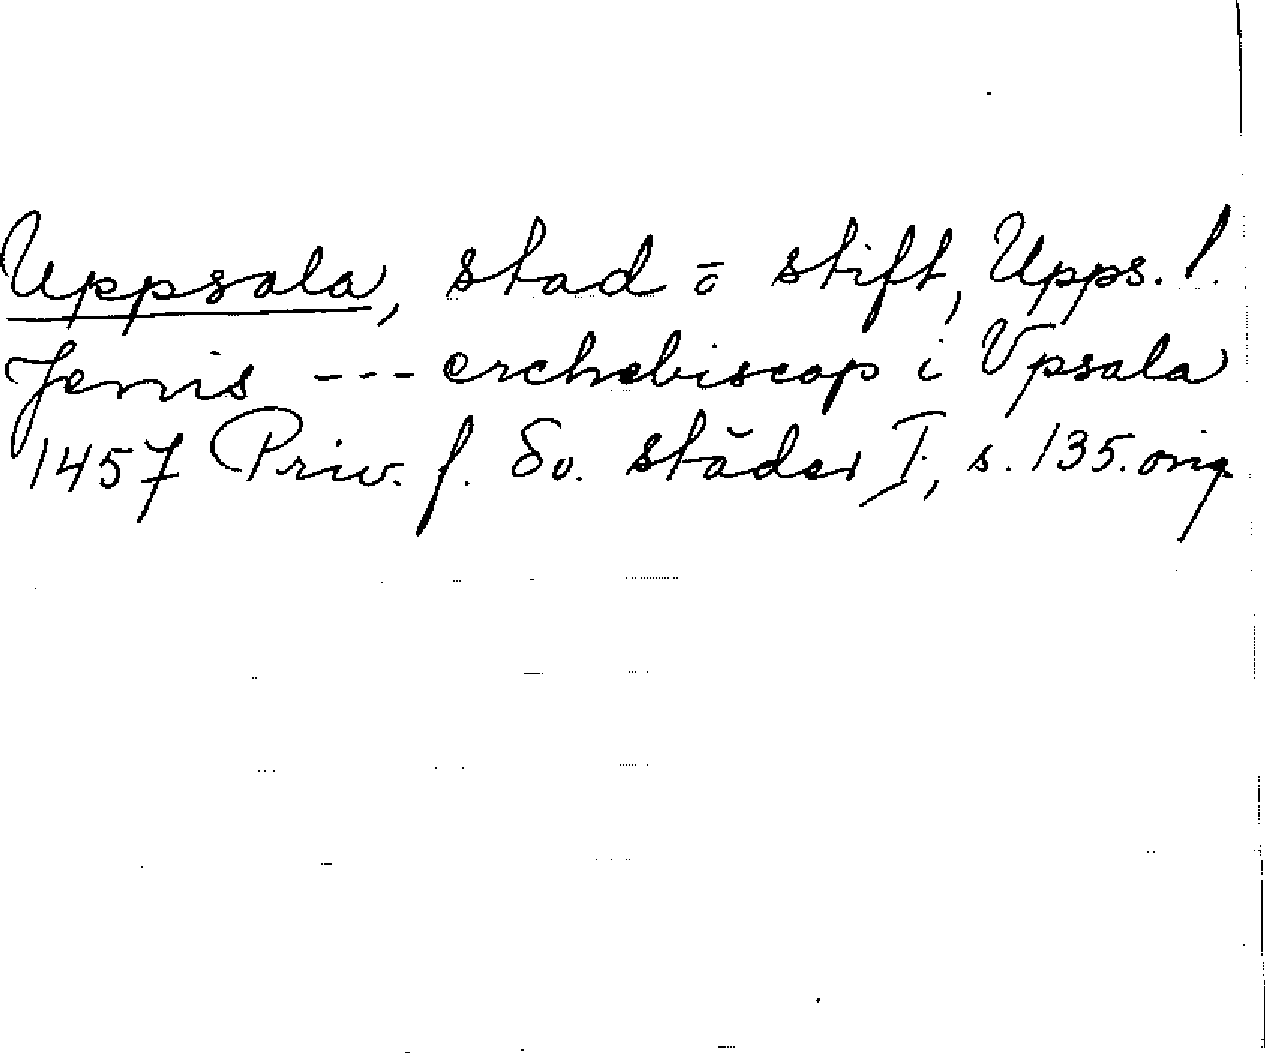 Uppsala, stad o stift, Upps. l.
Jenis --- erchebiscop i Vpsala
1457 Priv. f. Sv. städer I, s. 135. orig